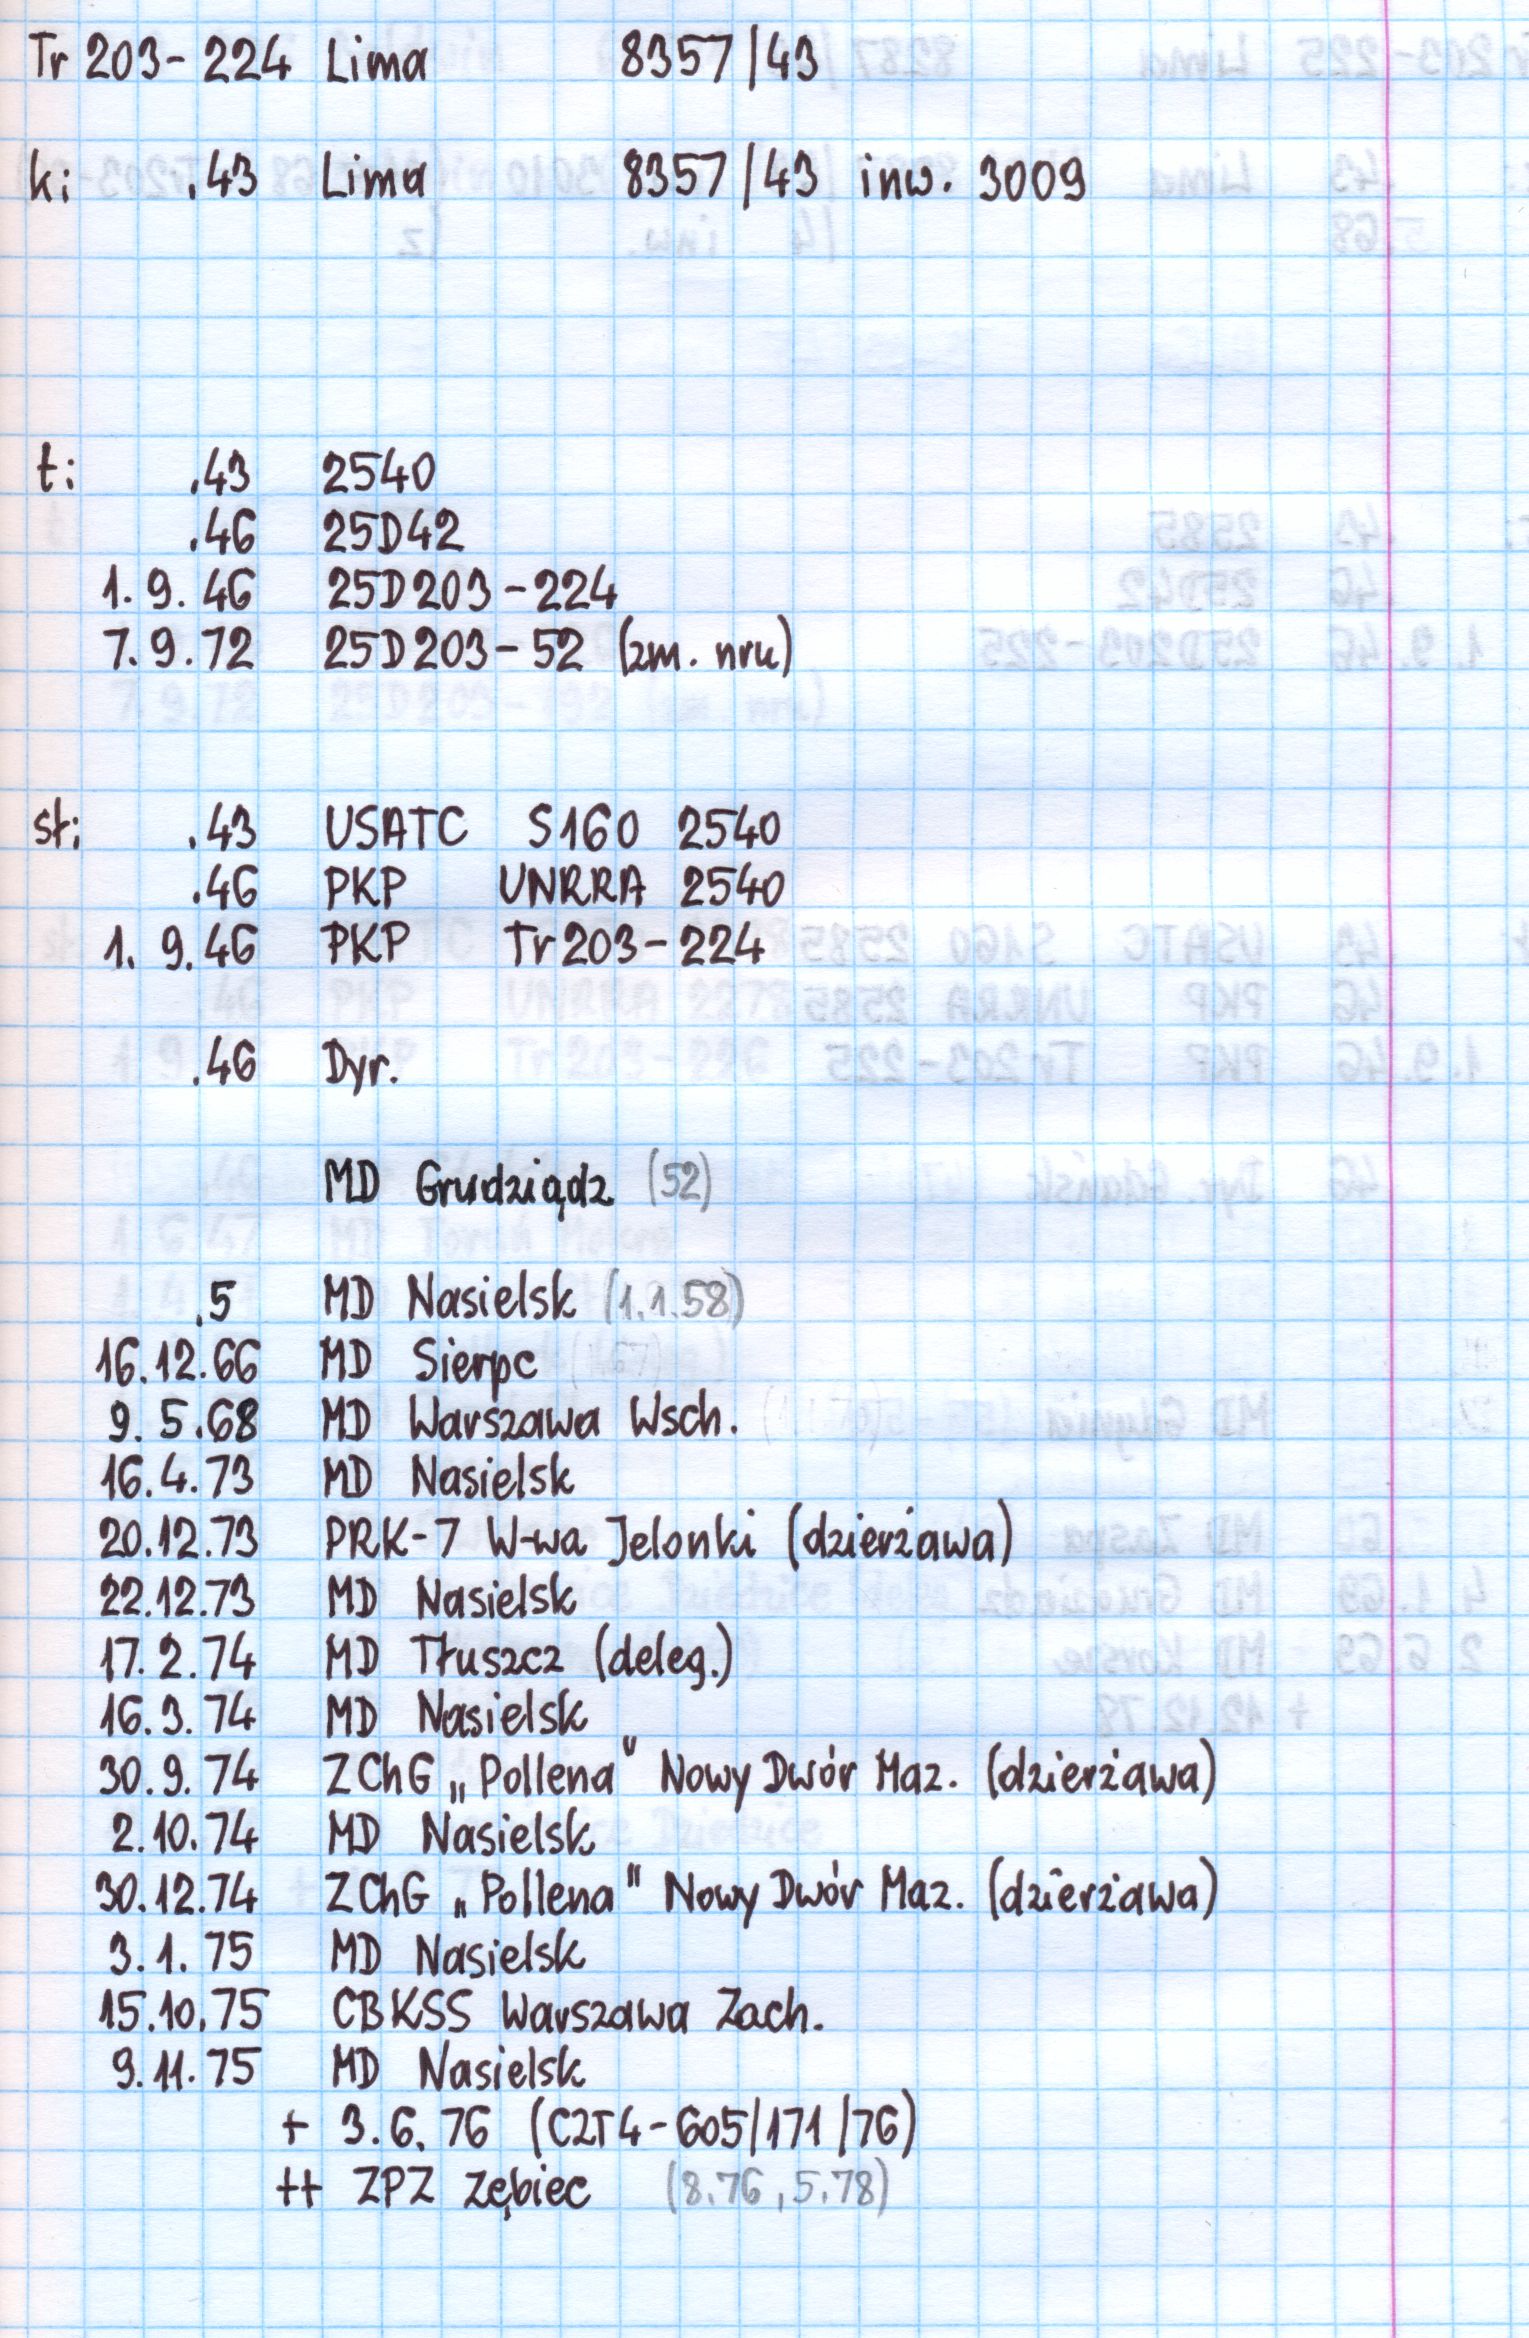 Tr 203-224 Lima 8357/43
k: .43 Lima 8357/43 inw. 3009
t: .43 2540
.46 25D42
1.9.46 25D203-224
7.9.72 25D203-52 (zm. nru)
sł: .43 USATC S160 2540
.46 PKP UNRRA 2540
1.9.46 PKP Tr203-224
.46 Dyr.
MD Grudziądz (52)
.5 MD Nasielsk (1.1.58)
16.12.66 MD Sierpc
9.5.68 MD Warszawa Wsch.
16.4.73 MD Nasielsk
20.12.73 PRK-7 W-wa Jelonki (dzierżawa)
22.12.73 MD Nasielsk
17.2.74 MD Tłuszcz (deleg.)
16.3.74 MD Nasielsk
30.9.74 ZChG „Pollena" Nowy Dwór Maz. (dzierżawa)
2.10.74 MD Nasielsk
30.12.74 ZChG „Pollena" Nowy Dwór Maz. (dzierżawa)
3.1.75 MD Nasielsk
15.10.75 CBKSS Warszawa Zach.
9.11.75 MD Nasielsk
+ 3.6.76 (C2T4-605/171/76)
++ ZPZ Zębiec (8.76, 5.78)